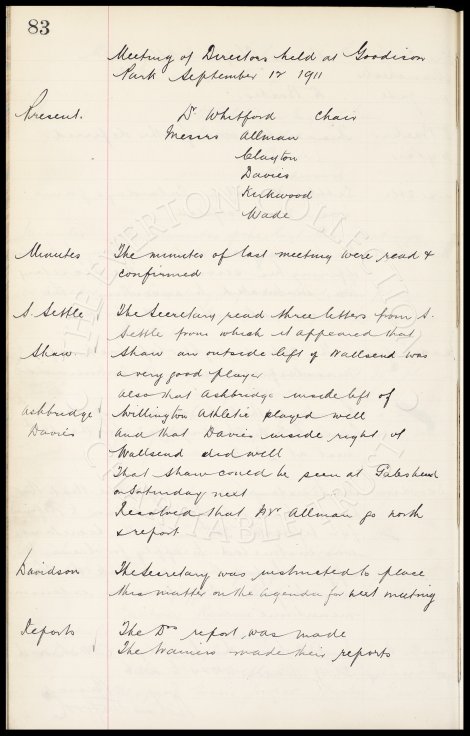 83
Meeting of Directors held at Goodison
Park September 12 1911
Present. Dr Whitford Chair
Messrs Allman
Clayton
Davies
Kirkwood
Wade
Minutes The minutes of last meeting were read &
confirmed
S. Settle The Secretary read three letters from S.
Settle from which it appeared that
Shaw Shaw an outside left of Wallsend was
a very good player
also that Ashbridge inside left of
Ashbridge Willington Athletic played well
Davies and that Davies inside right of
Wallsend did well
That Shaw could be seen at Gateshead
on Saturday next
Resolved that Mr Allman go north
& report
Davidson The Secretary was instructed to place
this matter on the agenda for next meeting
Reports The Drs report was made
The Trainers made their reports
THE EVERTON COLLECTION
CHARITABLE TRUST